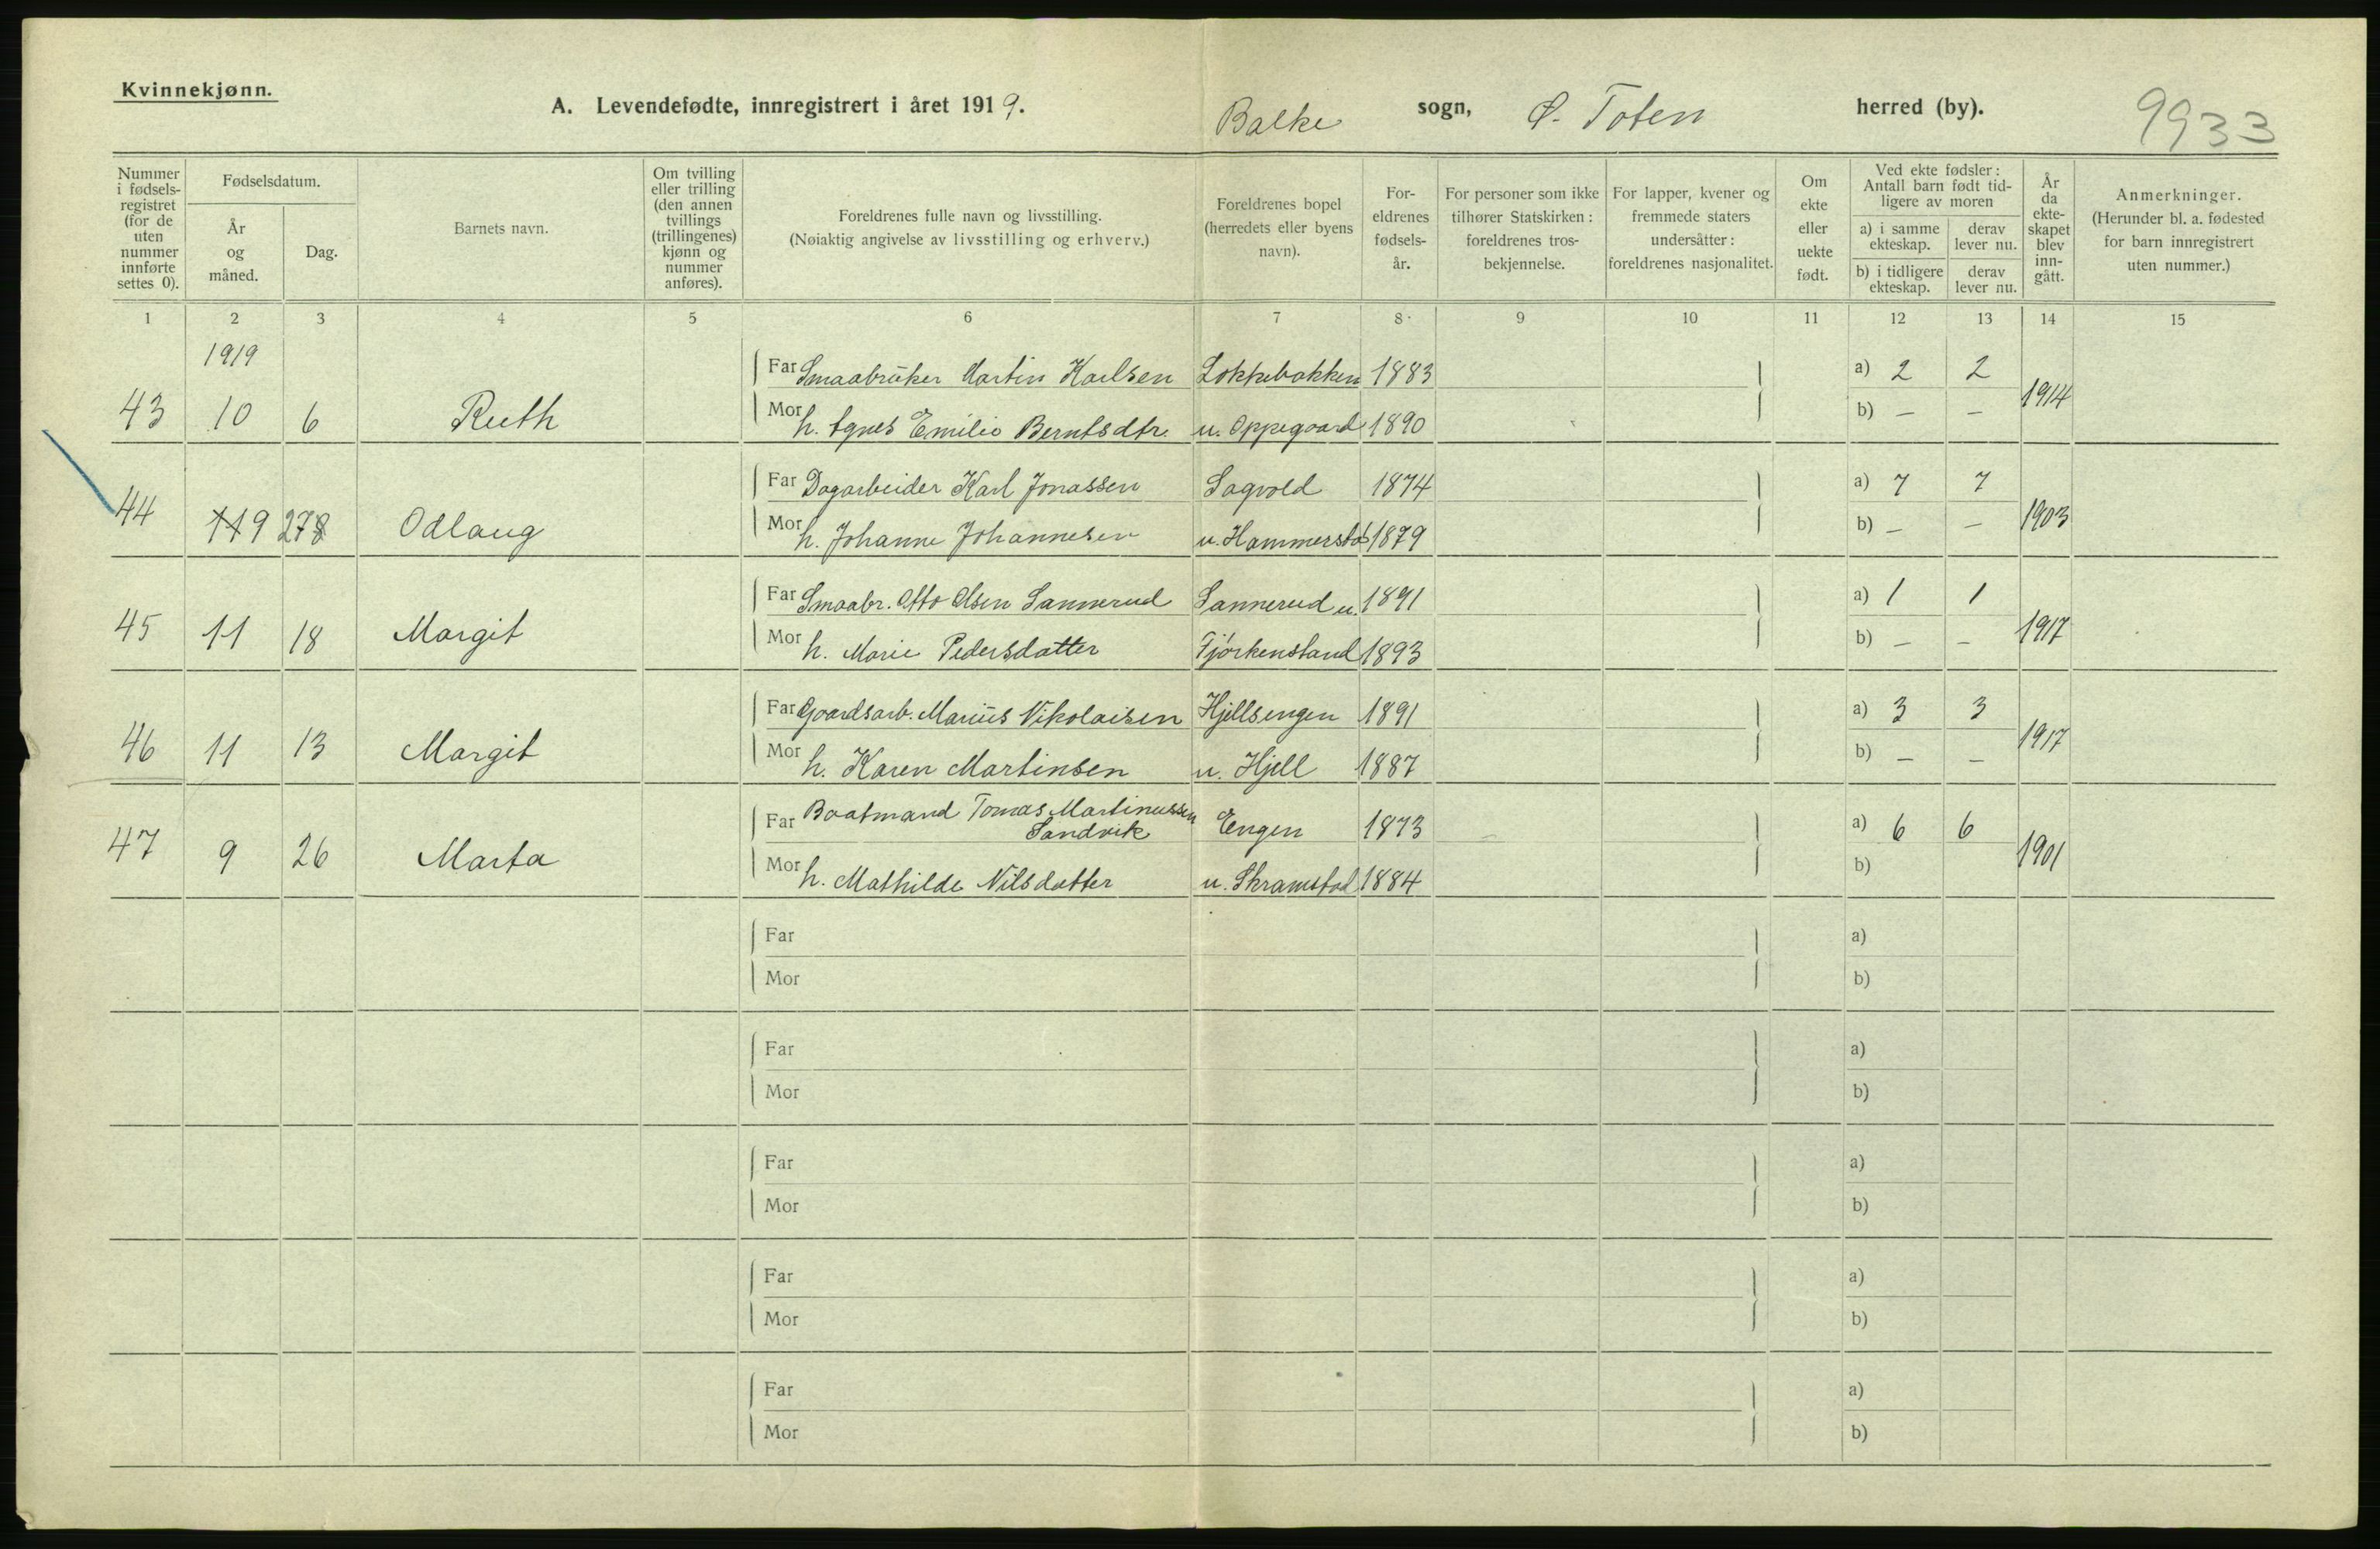 Kvinnekjønn.
A. Levendefødte, innregistrert i året 1919. Balke sogn, Ø. Toten herred (by). 9933
Nummer i fødsels-registret (for de uten nummer innførte settes 0).
Fødselsdatum.
År og måned.
Dag.
Barnets navn.
Om tvilling eller trilling (den annen tvillings (trillingenes) kjønn og nummer anføres).
Foreldrenes fulle navn og livsstilling.
(Nøiaktig angivelse av livsstilling og erhverv.)
Foreldrenes bopel (herredets eller byens navn).
For-eldrenes fødsels-år.
For personer som ikke tilhører Statskirken: foreldrenes tros-bekjennelse.
For lapper, kvener og fremmede staters undersåtter: foreldrenes nasjonalitet.
Om ekte eller uekte født.
Ved ekte fødsler: Antall barn født tid-ligere av moren
a) i samme ekteskap.
derav lever nu.
b) i tidligere ekteskap.
derav lever nu.
År da ekte-skapet blev inn-gått.
Anmerkninger.
(Herunder bl. a. fødested for barn innregistrert uten nummer.)
1 2 3 4 5 6 7 8 9 10 11 12 13 14 15
1919
Far Smaabruker Martin Karlsen Lokkebakken 1883 a) 2 2
43 10 6 Ruth 1914
Mor h. Agnes Emilie Berntsdtr. u. Oppegaard 1890 b) — —
Far Dagarbeider Karl Jonassen Sagvold 1874 a) 7 7
44 11 9 27 8 Odlaug 1903
Mor h. Johanne Johannesen u. Hammerstad 1879 b) — —
Far Smaabr. Otto Olsen Sannerud Sannerud u. 1891 a) 1 1
45 11 18 Margit 1917
Mor h. Marie Pedersdatter Fjørkenstand 1893 b) — —
Far Gaardsarb. Marius Nikolaisen Hjellsengen 1891 a) 3 3
46 11 13 Margit 1917
Mor h. Karen Martinsen u. Hjell 1887 b) — —
Far Baatmand Tomas Martinussen
Sandvik Engen 1873 a) 6 6
47 9 26 Marta 1901
Mor h. Mathilde Nilsdatter u. Skramstad 1884 b)
Far a)
Mor b)
Far a)
Mor b)
Far a)
Mor b)
Far a)
Mor b)
Far a)
Mor b)